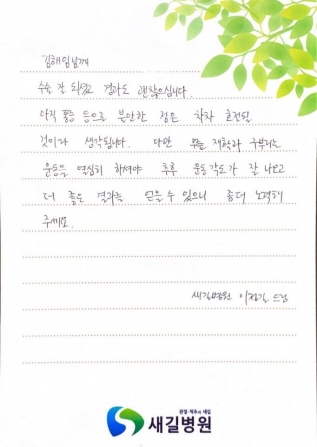 김해임님께
수술 잘 되셨고 결과도 괜찮으십니다.
아직 통증 등으로 불안한 점은 차차 호전될
것이라 생각됩니다. 다만 무릎 재활과 구부리는
운동을 열심히 하셔야 추후 운동각도가 잘 나오고
더 좋은 결과를 얻을 수 있으니 좀더 노력해
주세요.
새길병원 드림
관절·척추의 새길
새길병원